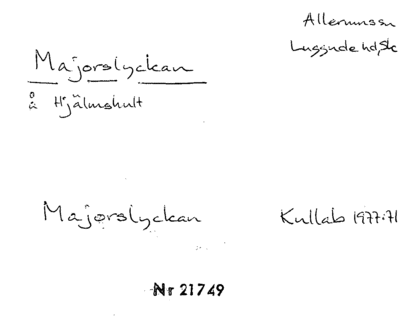 Allerums sn
Luggude hd, Sk
Majorslyckan
å Hjälmshult
Majorslyckan
Kullab 1977:71
Nr 21749